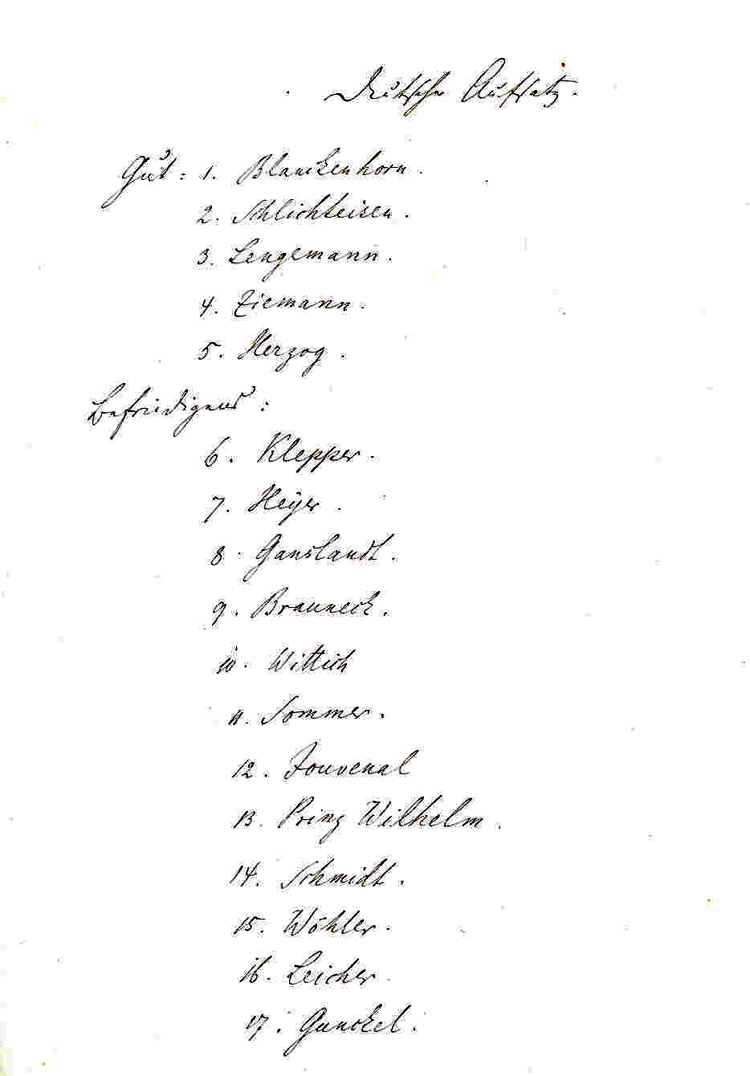 Deutscher Aufsatz.
Gut: 1. Blanckenhorn.
2. Schlichteisen.
3. Lengemann.
4. Ziemann.
5. Herzog.
Befriedigend:
6. Klepper.
7. Heyer.
8. Ganslandt.
9. Brauneck.
10. Wittich
11. Sommer.
12. Jouvenal
13. Prinz Wilhelm.
14. Schmidt.
15. Wöhler.
16. Leicher.
17. Gunckel.